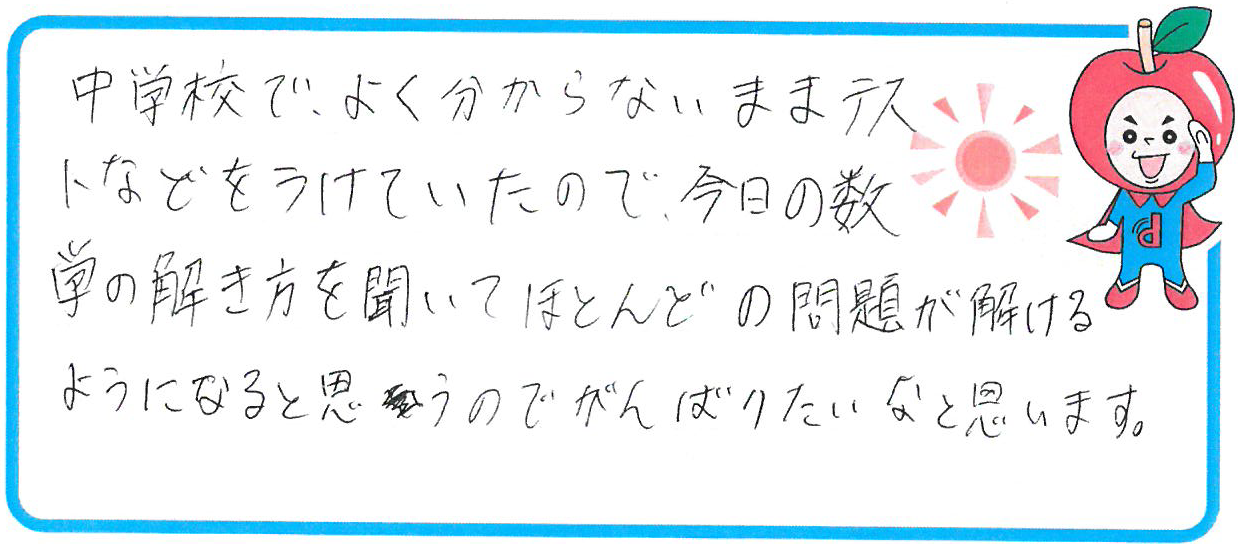 中学校で、よく分からないままテス
トなどをうけていたので、今日の数
学の解き方を聞いてほとんどの問題が解ける
ようになると思うのでがんばりたいなと思います。